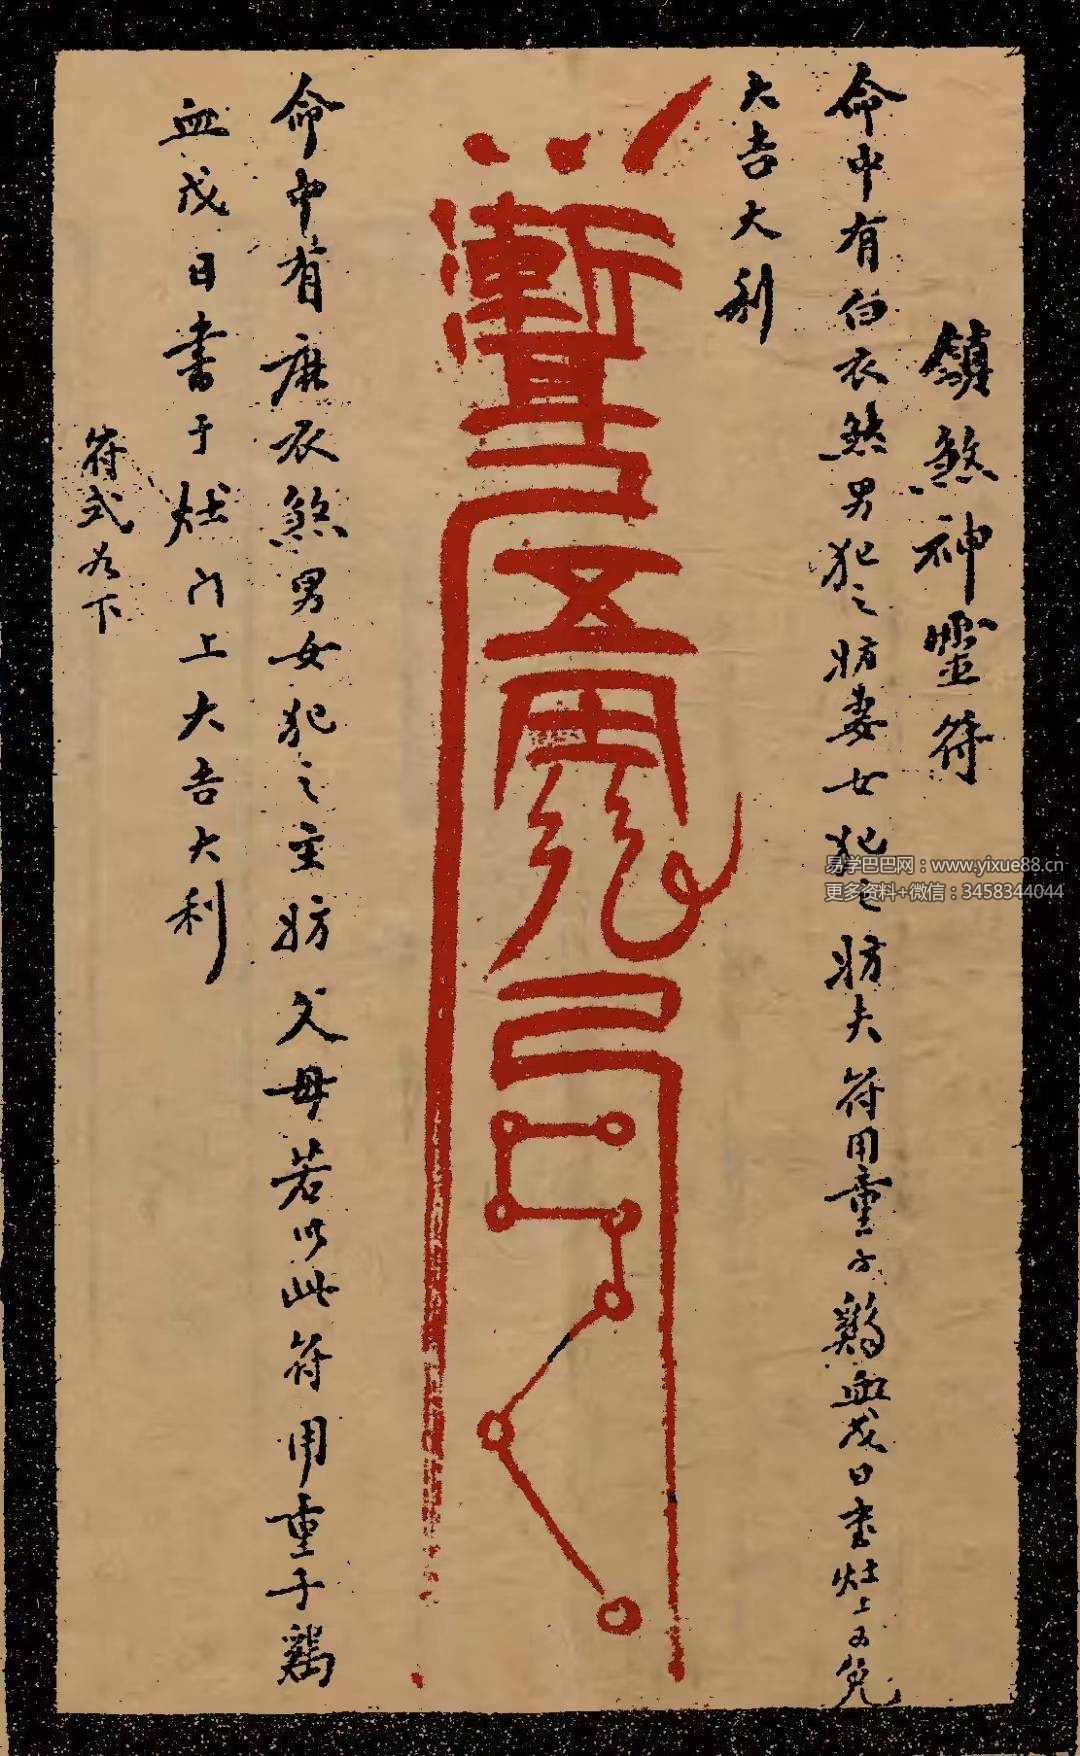 鎮煞神靈符
命中有白衣煞男犯之妨妻女犯之妨夫符用童子鷄血戊日書灶上可免
大吉大利
命中有麻衣煞男女犯之主妨父母若以此符用童子鷄
血戊日書于灶门上大吉大利
符式如下
易学巴巴网：www.yixue88.cn
更多资料+微信：3458344044